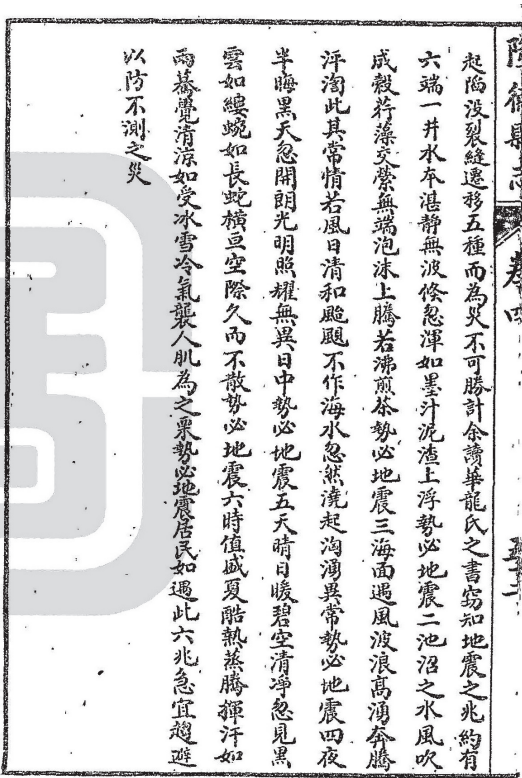 隆德縣志
卷四
起陷没裂縫遷移五種而為災不可勝計余讀華龍氏之書竊知地震之兆約有
六端一井水本湛静無波倐忽渾如墨汁泥渣上浮勢必地震二池沼之水風吹
成縠荇藻交縈無端泡沫上騰若沸煎茶勢必地震三海面遇風波浪高湧奔騰
泙淘此其常情若風日清和颱颶不作海水忽然澆起洶湧異常勢必地震四夜
半晦黑天忽開朗光明照耀無異日中勢必地震五天晴日暖碧空清净忽見黑
雲如縷蜿如長蛇横亘空際久而不散勢必地震六時值盛夏酷熱蒸騰揮汗如
雨驀覺清涼如受冰雪冷氣襲人肌為之栗勢必地震居民如遇此六兆急宜趨避
以防不測之災